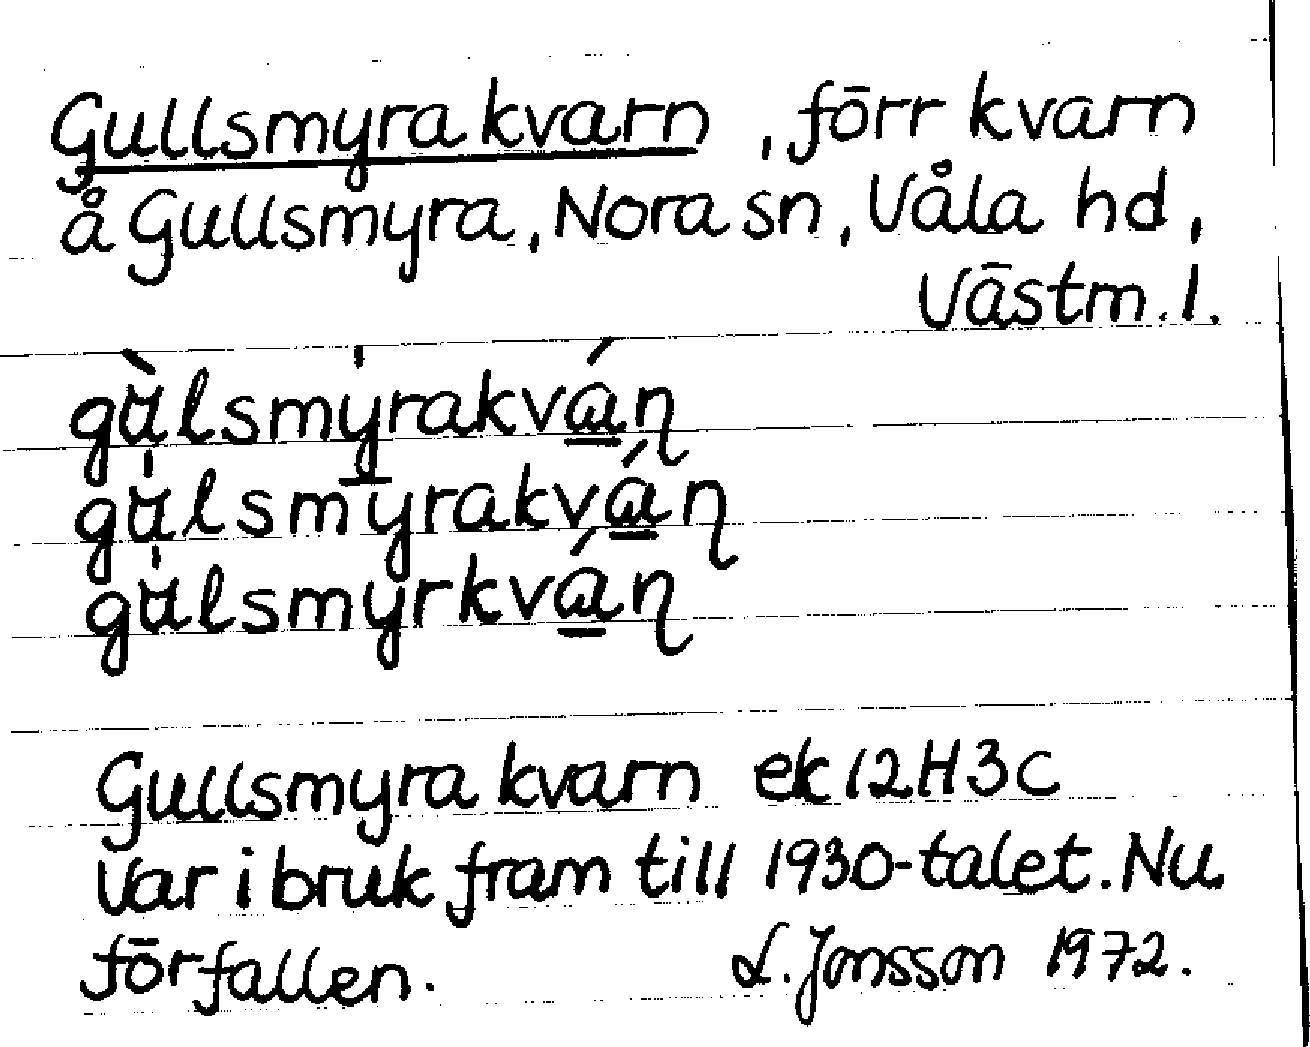 Gullsmyra kvarn, förr kvarn
å Gullsmyra, Nora sn, Våla hd,
Västm. l.
gù̱lsmýrakvá̱ɳ
gù̱lsmy̅rakvá̱ɳ
gù̱lsmyrkvá̱ɳ
Gullsmyra kvarn ek 12H3c
Var i bruk fram till 1930-talet. Nu
förfallen. L. Jonsson 1972.